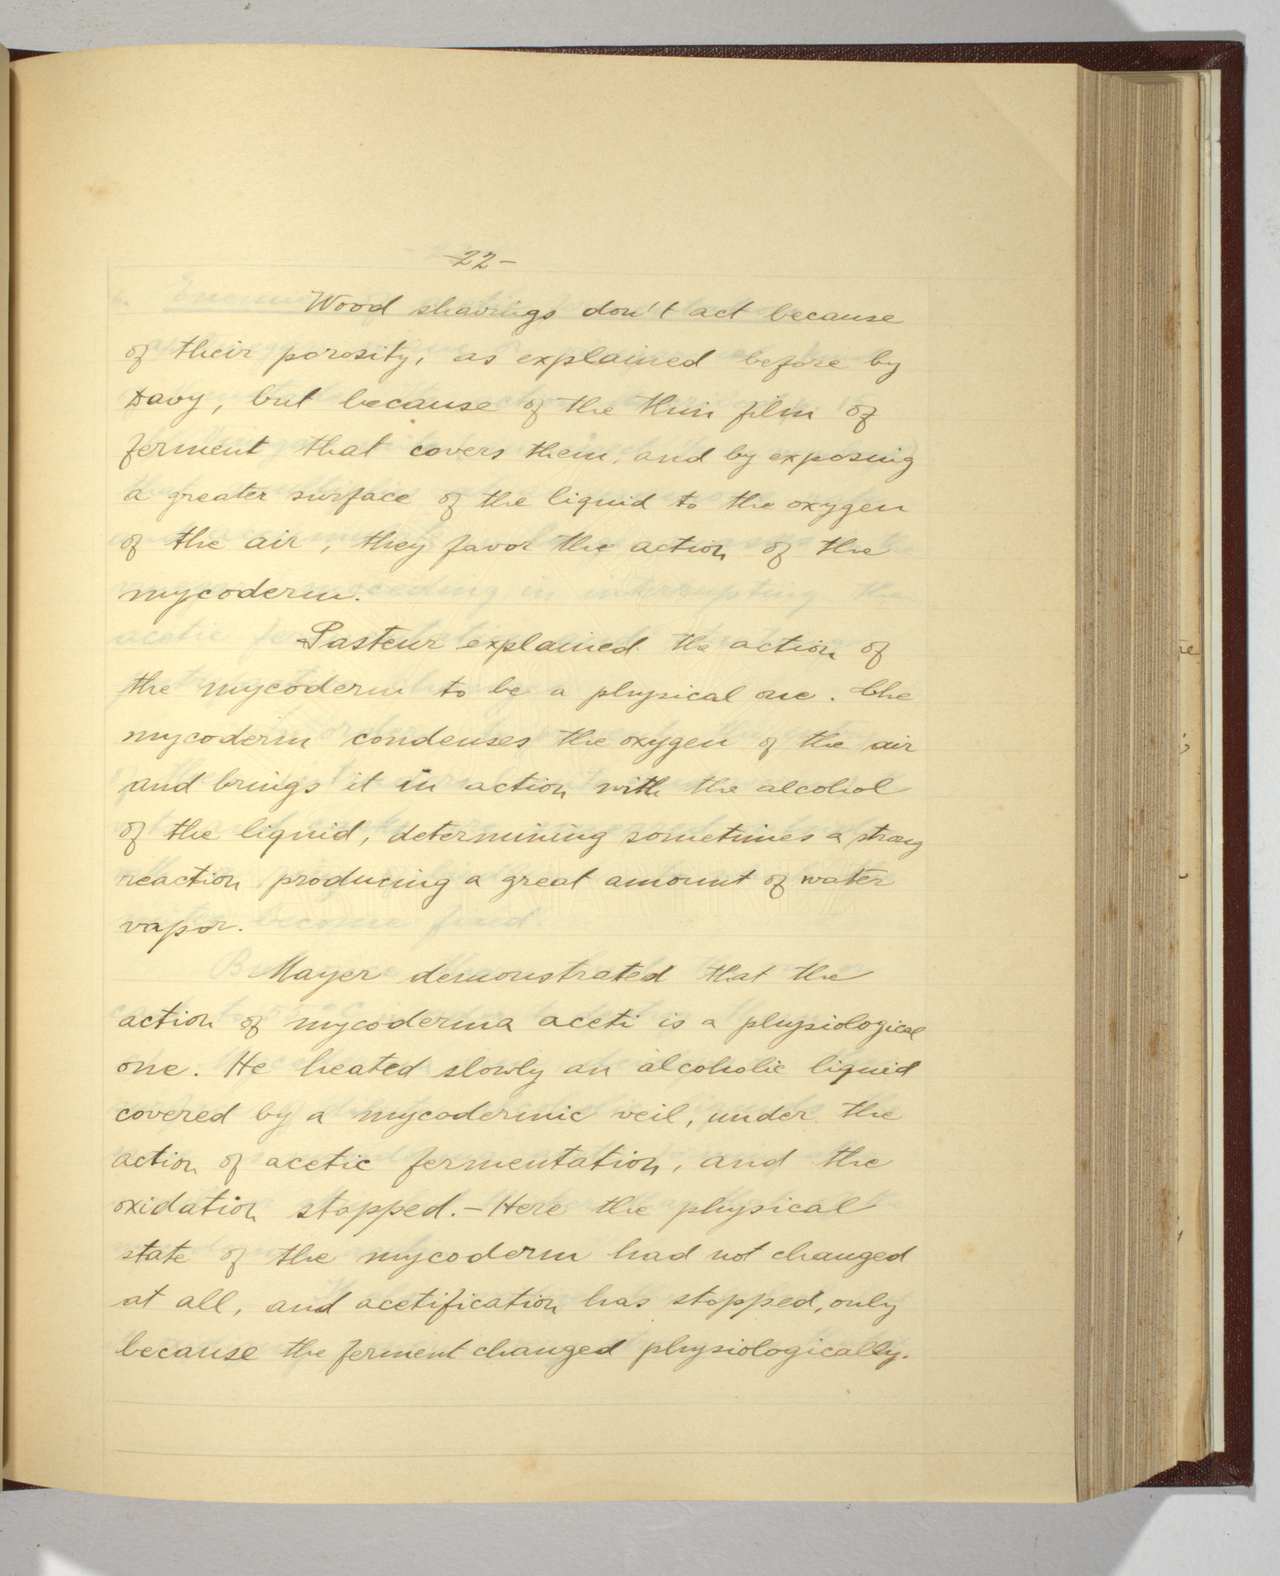 -22-
Wood shavings don't act because
of their porosity, as explained before by
Davy, but because of the thin film of
ferment that covers them, and by exposing
a greater surface of the liquid to the oxygen
of the air, they favor the action of the
mycoderm.
Pasteur explained the action of
the mycoderm to be a physical one. The
mycoderm condenses the oxygen of the air
and brings it in action with the alcohol
of the liquid, determining sometimes a strong
reaction, producing a great amount of water
vapor.
Mayer demonstrated that the
action of mycoderma aceti is a physiological
one. He heated slowly an alcoholic liquid
covered by a mycodermic veil, under the
action of acetic fermentation, and the
oxidation stopped.- Here the physical
state of the mycoderm had not changed
at all, and acetification has stopped, only
because the ferment changed physiologically.